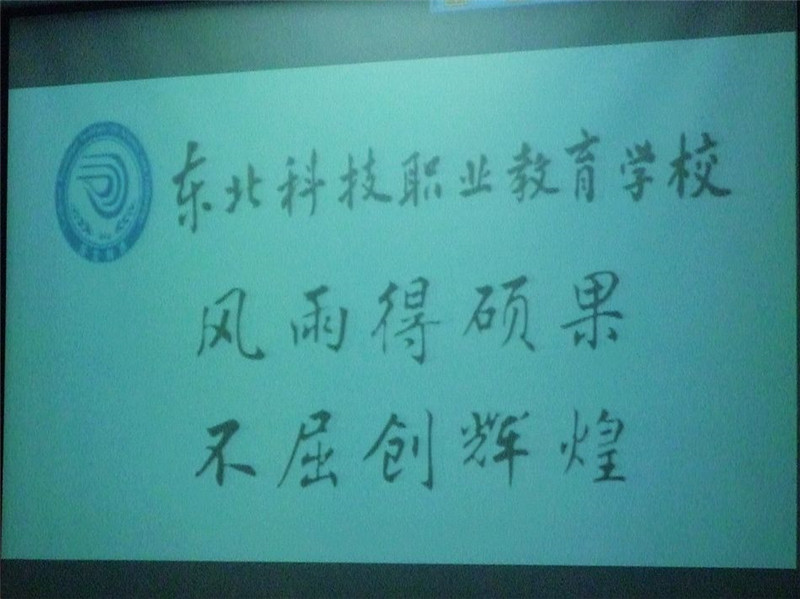 东北科技职业教育学校
风雨得硕果
不屈创辉煌